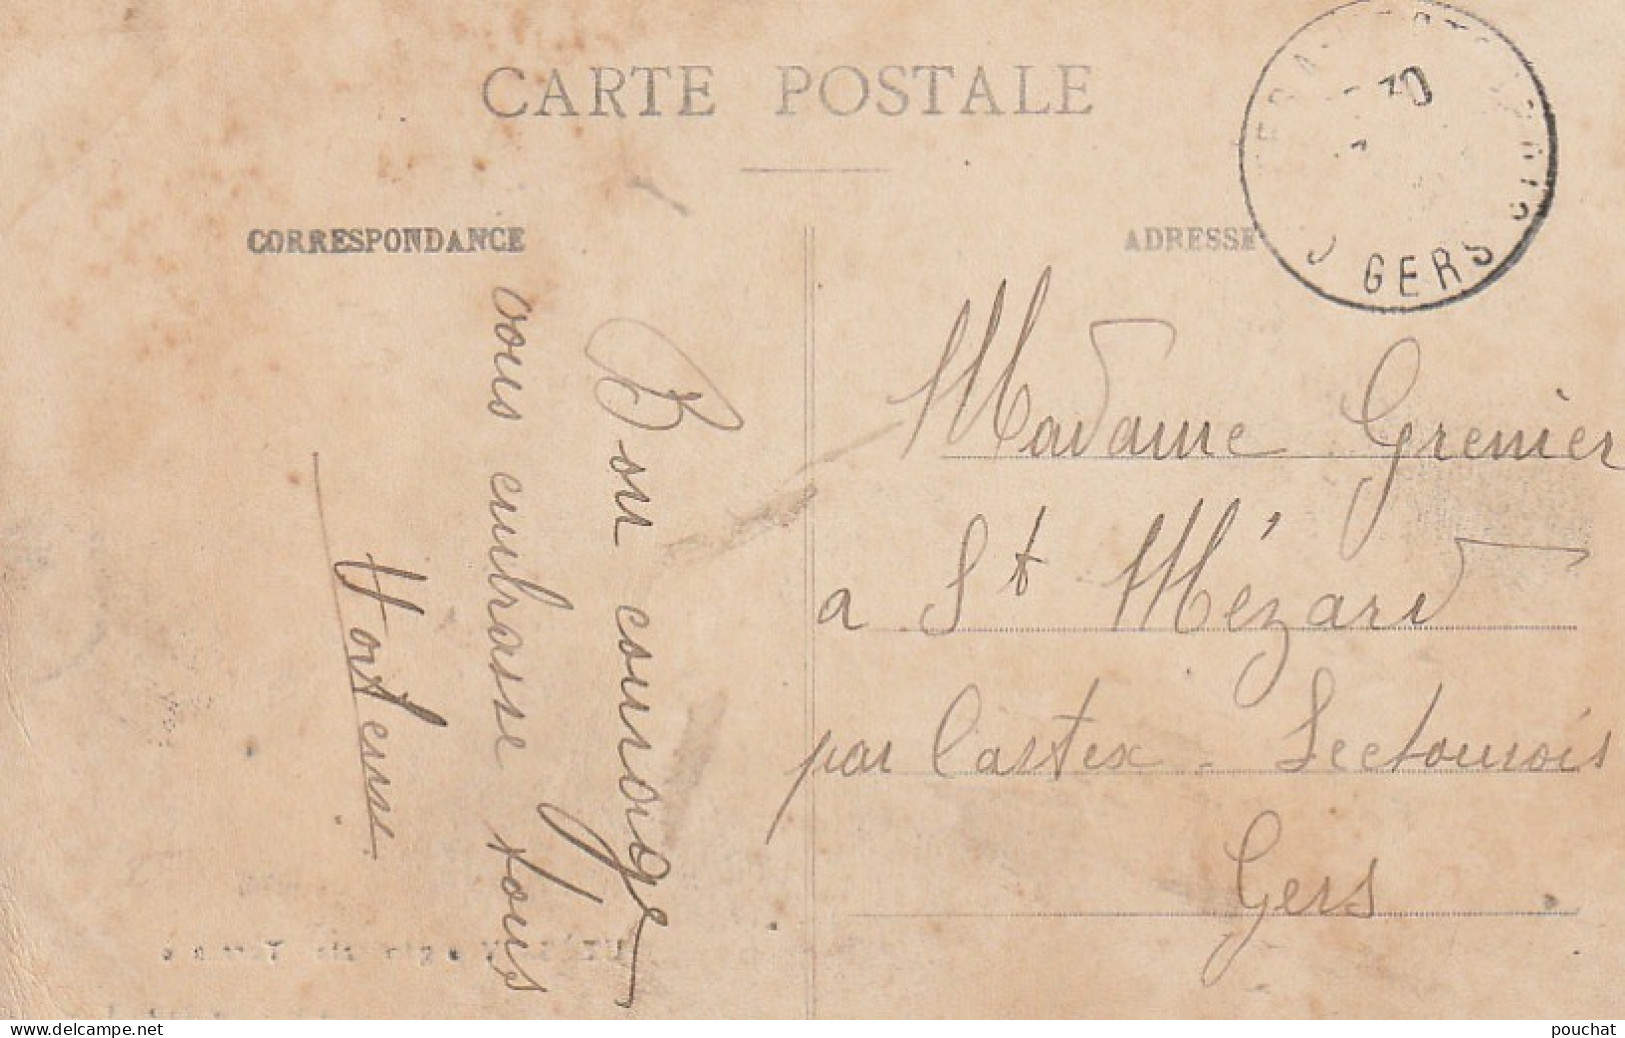 CARTE POSTALE
CORRESPONDANCE
ADRESSE
30
GERS
Bon courage
vous embrasse tous
Hortense
Madame Grenier
a St Mézard
par Castex - Lectourois
Gers
www.delcampe.net
pouchat